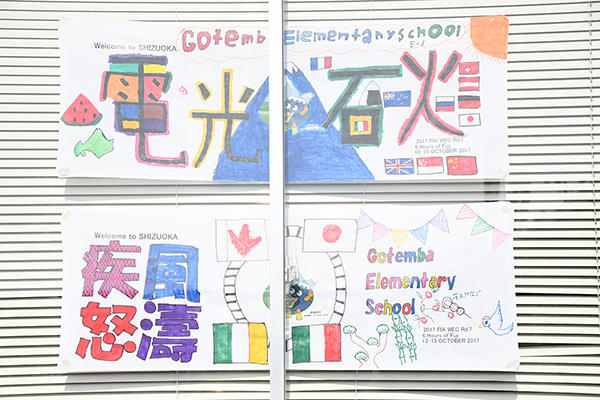 Welcome to SHIZUOKA
Gotemba Elementary school
5-1
電光石火
2017 FIA WEC Rd.7
6 Hours of Fuji
13-15 OCTOBER 2017
Welcome to SHIZUOKA
疾風
怒濤
Gotemba
Elementary
School
2017 FIA WEC Rd.7
6 Hours of Fuji
13-15 OCTOBER 2017